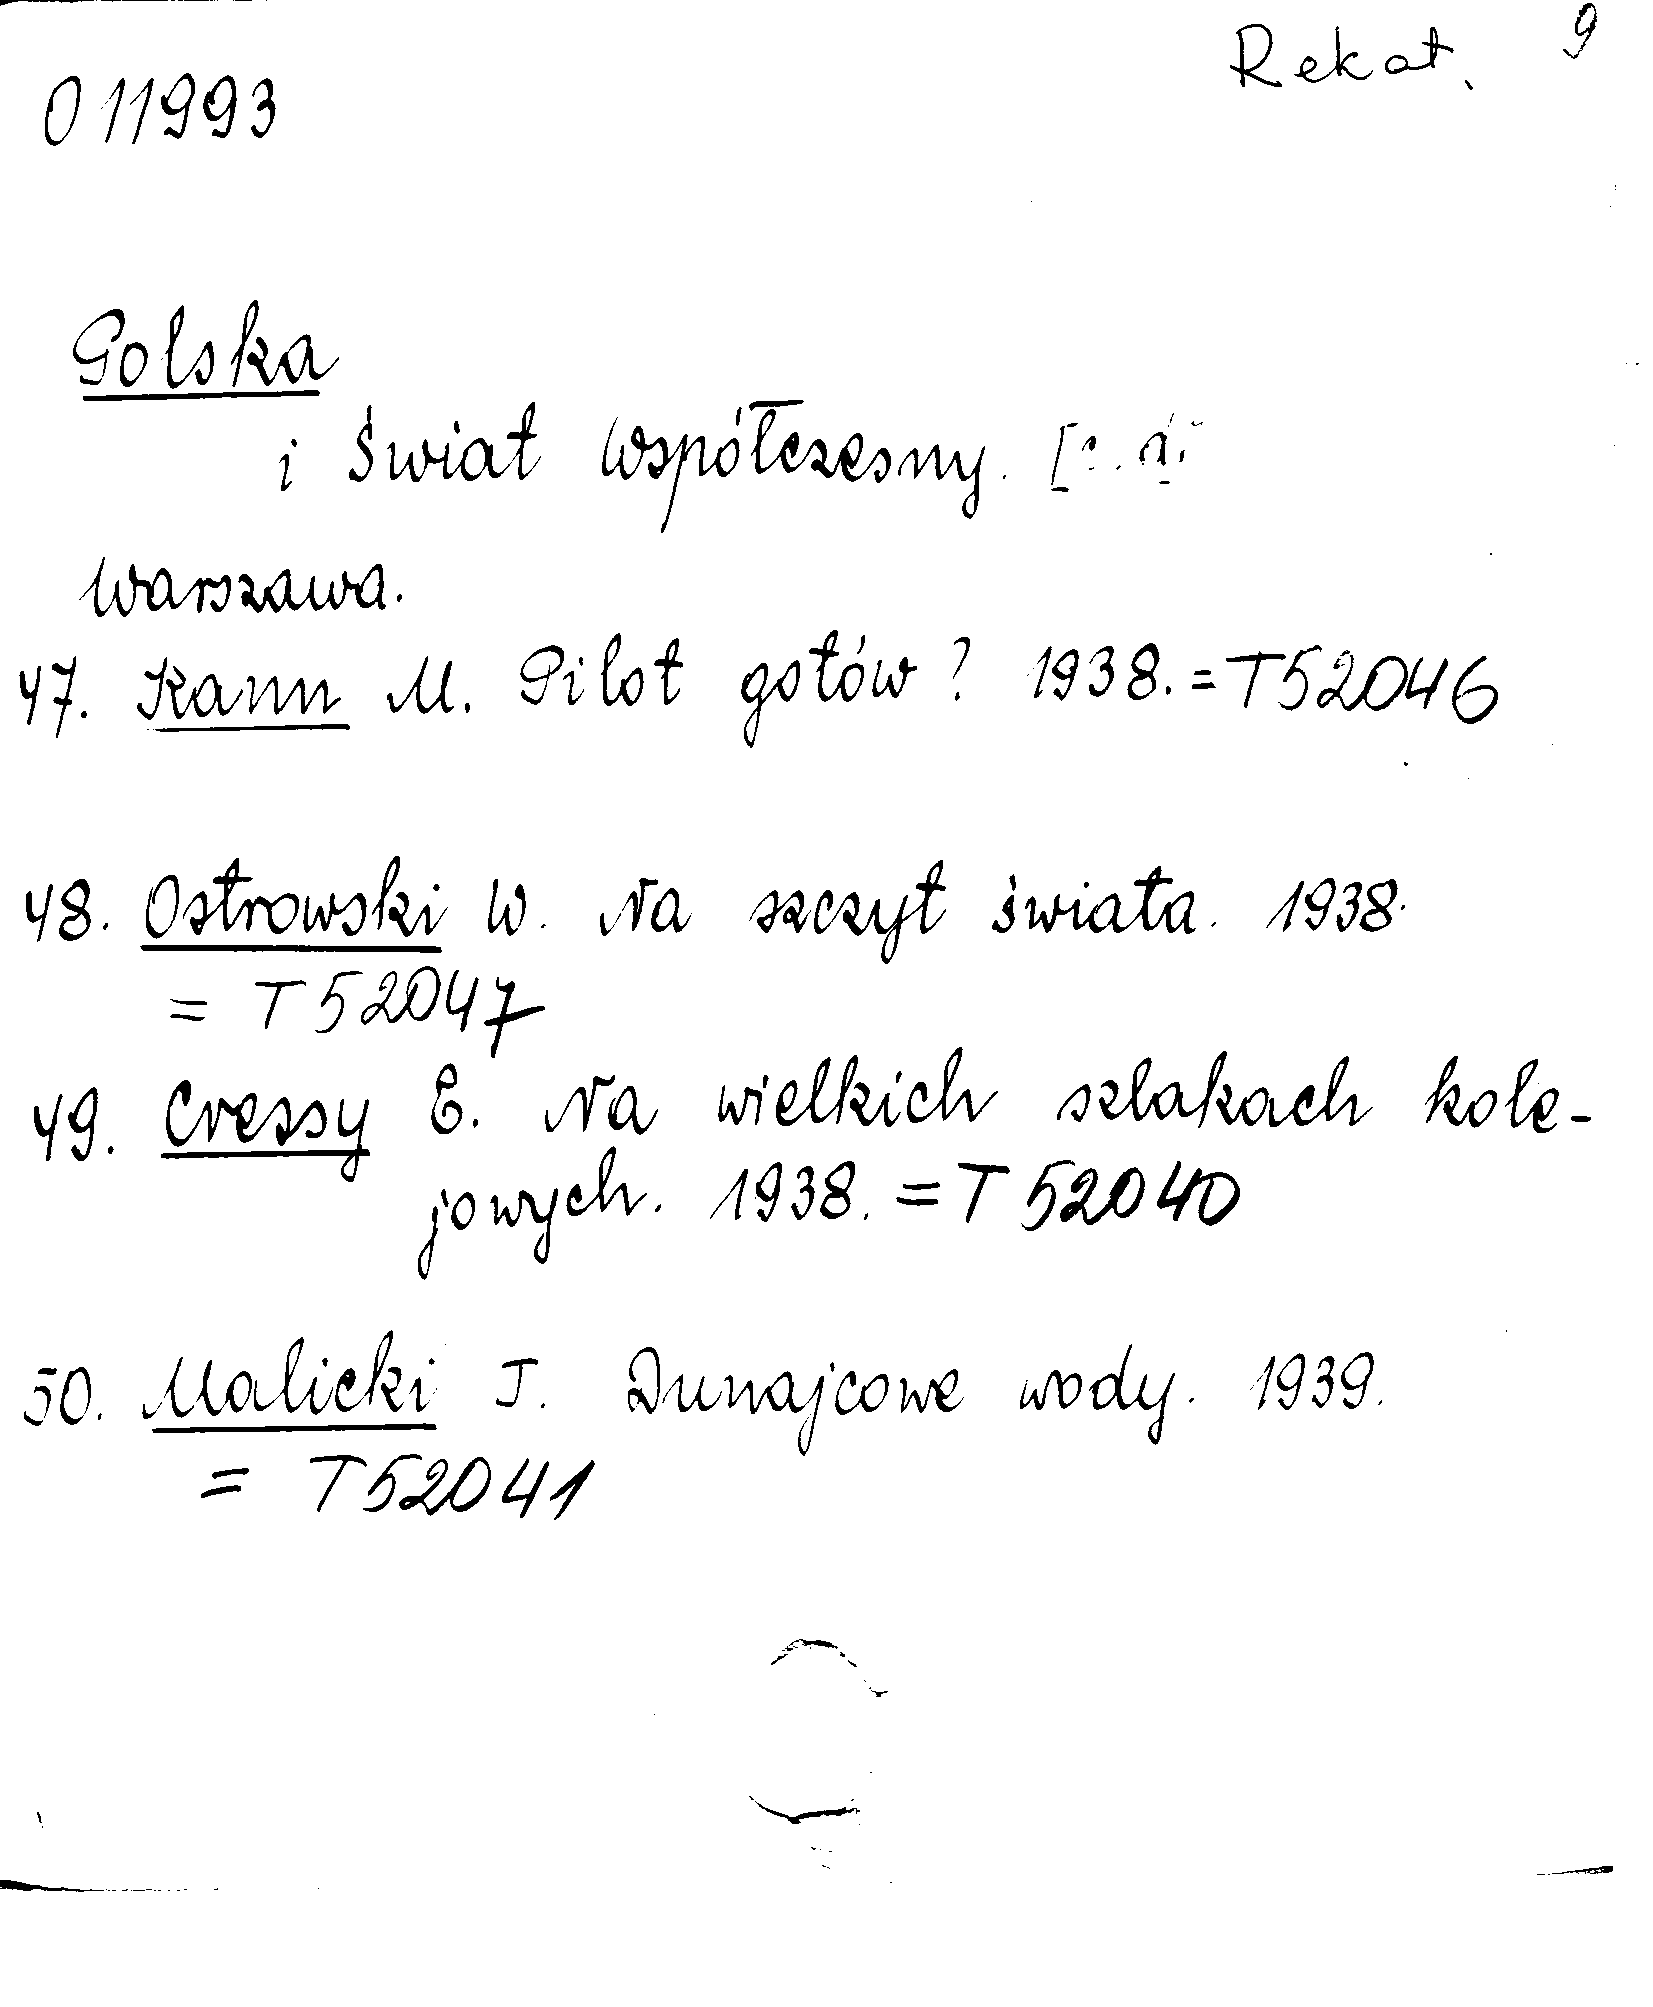 Rekat. 9
011993
Polska
i Świat Współczesny.
Warszawa.
47. Kann M. Pilot gotów? 1938. = T52046
48. Ostrowski W. Na szczyt świata. 1938.
= T52047
49. Cressy E. Na wielkich szlakach kole-
jowych. 1938. = T52040
50. Malicki J. Dunajcowe wody. 1939.
= T52041